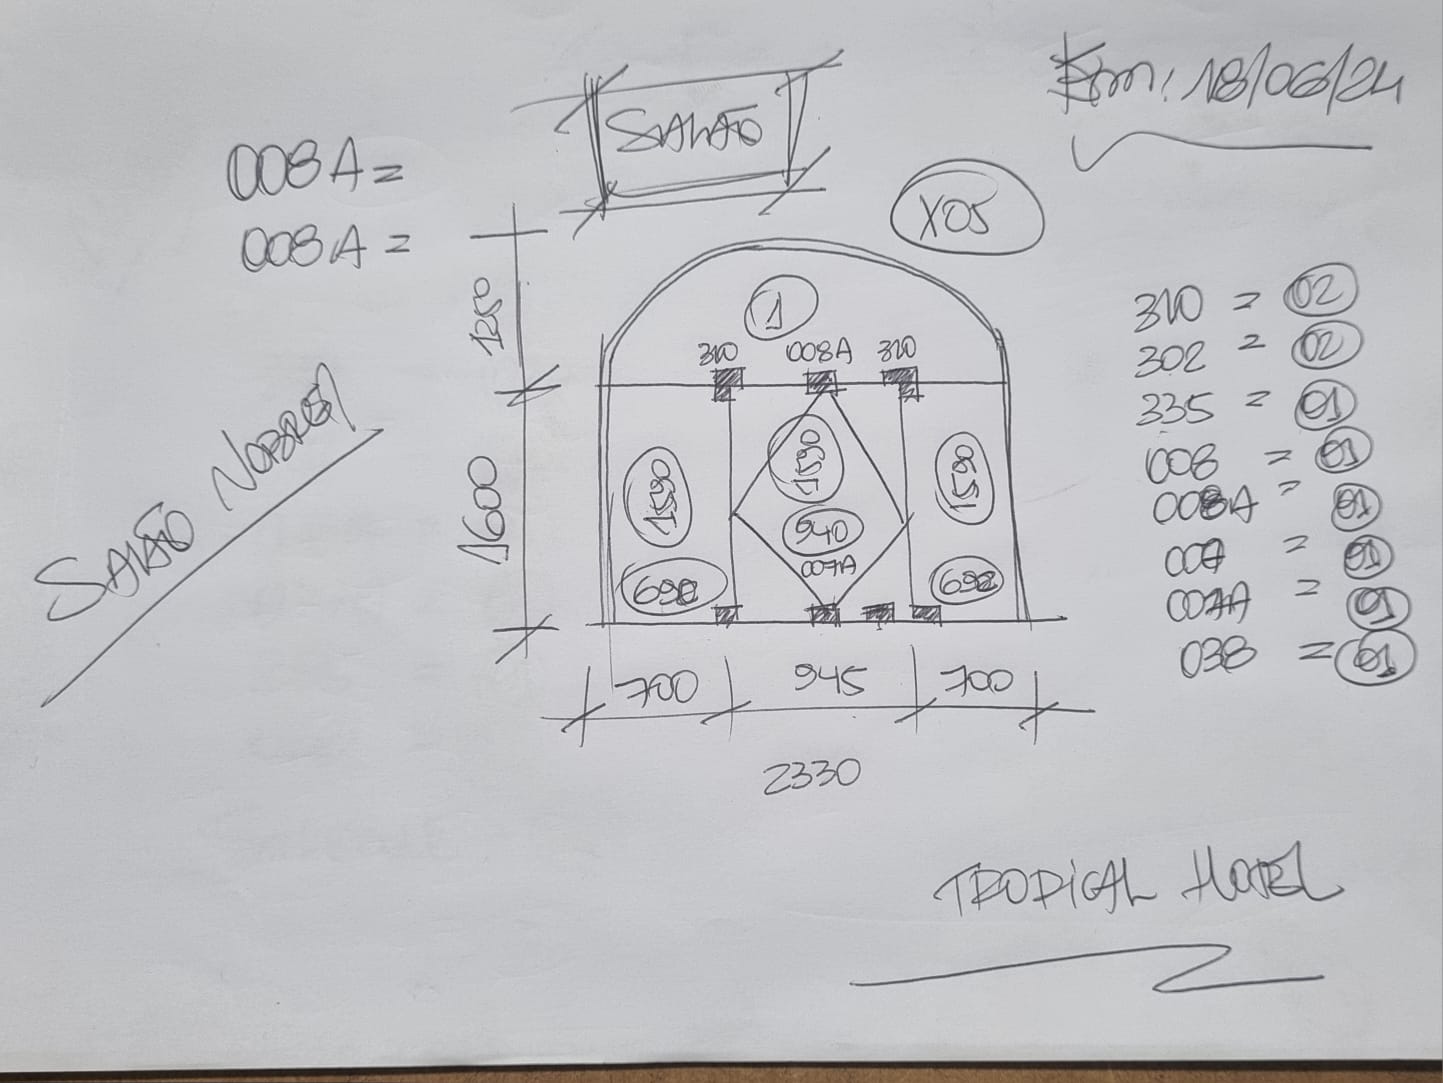 Em: 18/06/24
SALÃO
008A =
008A =
X05
1
310 008A 310
1600
1590
940
007A
692
692
700 945 700
2330
SALÃO NOBRE
310 = 02
302 = 02
335 = 01
008 = 01
008A = 01
007 = 01
007A = 01
038 = 01
TROPICAL HOTEL